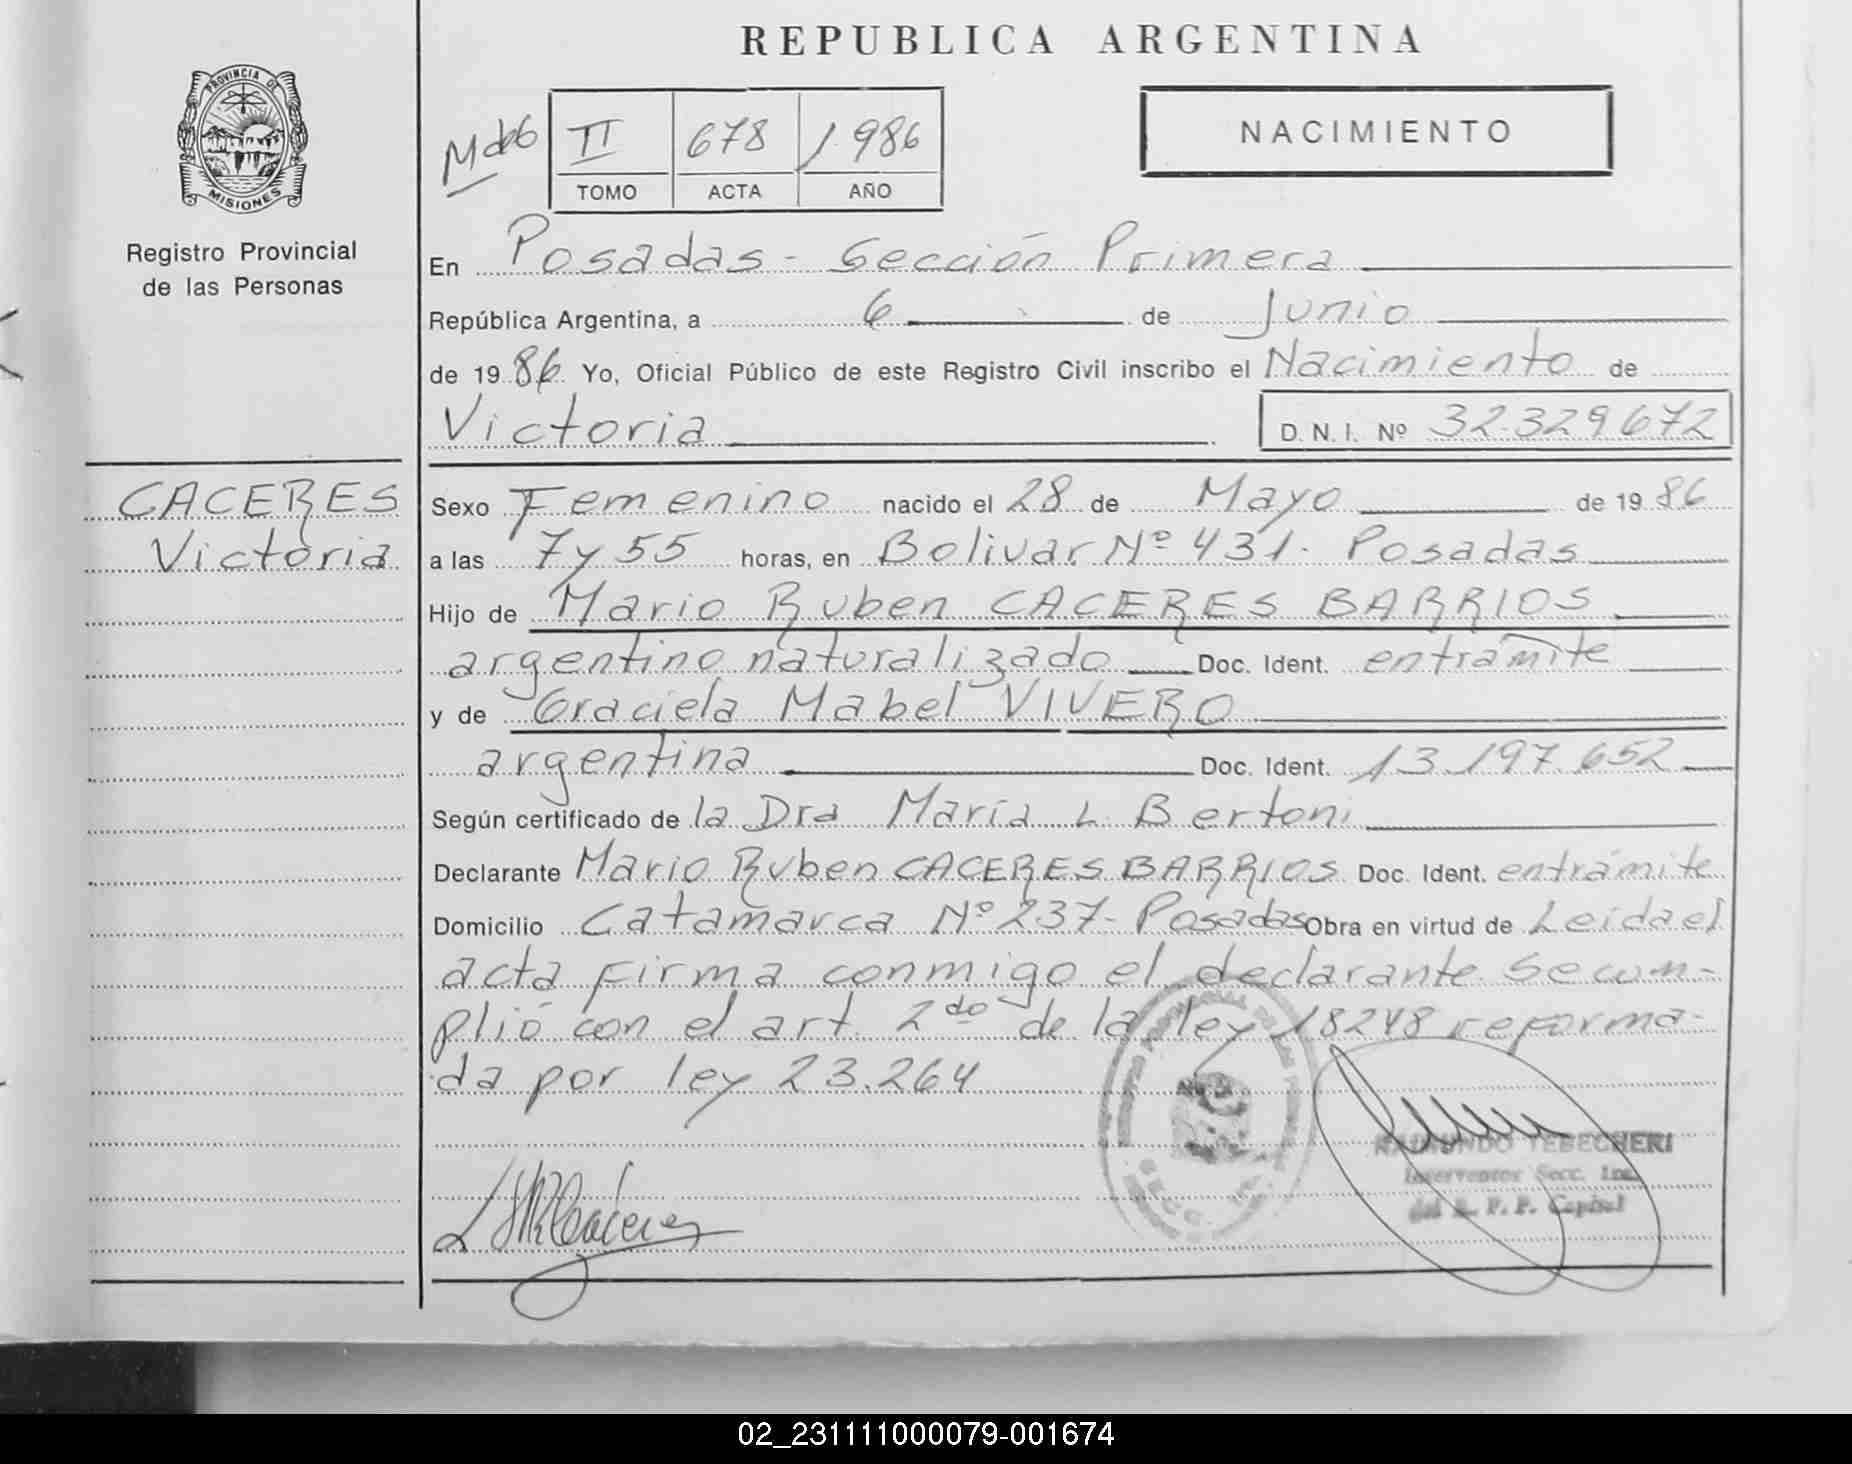 REPUBLICA ARGENTINA
PROVINCIA DE
MISIONES
Registro Provincial
de las Personas
II 678 1986
TOMO ACTA AÑO
NACIMIENTO
En Posadas - Sección Primera
República Argentina, a 6 de Junio
de 1986 Yo, Oficial Público de este Registro Civil inscribo el Nacimiento de
Victoria D.N.I. Nº 32.329.672
CACERES
Victoria
Sexo Femenino nacido el 28 de Mayo de 1986
a las 7 y 55 horas, en Bolivar Nº 431. Posadas
Hijo de Mario Ruben CACERES BARRIOS
argentino naturalizado Doc. Ident. en trámite
y de Graciela Mabel VIVERO
argentina Doc. Ident. 13.197.652
Según certificado de la Dra María L. Bertoni
Declarante Mario Ruben CACERES BARRIOS Doc. Ident. en trámite
Domicilio Catamarca Nº 237- Posadas Obra en virtud de Leída el
acta firma conmigo el declarante. Se cum-
plió con el art. 2do de la ley 18248 reforma-
da por ley 23.264
RAIMUNDO TEBECHERI
Interventor Secc. 1ra.
del R. P. P. Capital
02_231111000079-001674